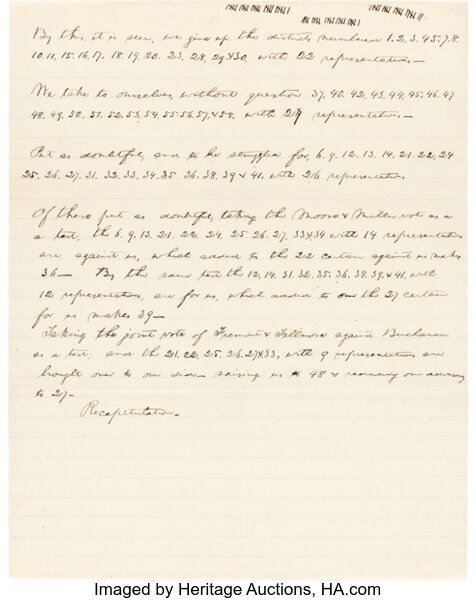 By this, it is seen, we give up the districts numbered 1. 2. 3. 4. 5. 7. 8.
10. 11. 15. 16. 17. 18. 19. 20. 23. 28. 29 & 30, with 22 representatives—
We take to ourselves, without question 37, 40. 42. 43. 44. 45. 46. 47
48. 49. 50. 51. 52. 53. 54. 55. 56. 57. & 58. with 27 representatives—
Put as doubtful, and to be struggled for, 6. 9. 12. 13. 14. 21. 22. 24
25. 26. 27. 31. 32. 33. 34. 35. 36. 38. 39 & 41. with 26 representatives
Of those put as doubtful, taking the Moore & Miller vote as a
a test, the 6. 9. 13. 21. 22. 24. 25. 26. 27. 33 & 34 with 14 representatives
are against us, which added to the 22 certain against us makes
36— By the same test the 12. 14. 31. 32. 35. 36. 38. 39. & 41. with
12 representatives, are for us, which added to the 27 certain
for us makes 39—
Taking the joint vote of Fremont & Fillmore against Buchanan
as a test; and the 21. 22. 25. 26. 27 & 33, with 9 representatives are
brought over to our side— raising us to 48 & reducing our adversary
to 27—
Recapitulation—
Imaged by Heritage Auctions, HA.com